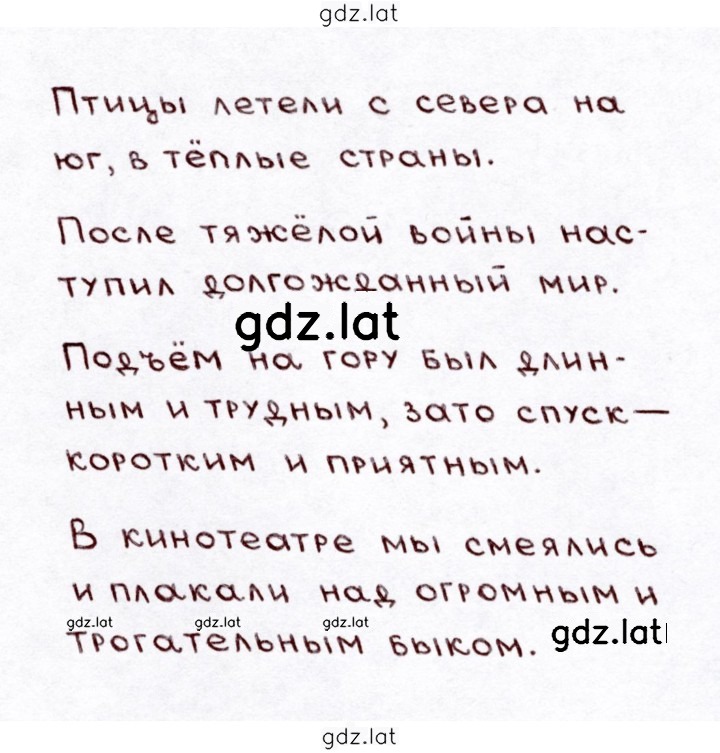 gdz.lat
Птицы летели с севера на
юг, в тёплые страны.
После тяжёлой войны нас-
тупил долгожданный мир.
gdz.lat
Подъём на гору был длин-
ным и трудным, зато спуск—
коротким и приятным.
В кинотеатре мы смеялись
и плакали над огромным и
gdz.lat gdz.lat gdz.lat
трогательным быком. gdz.lat
gdz.lat